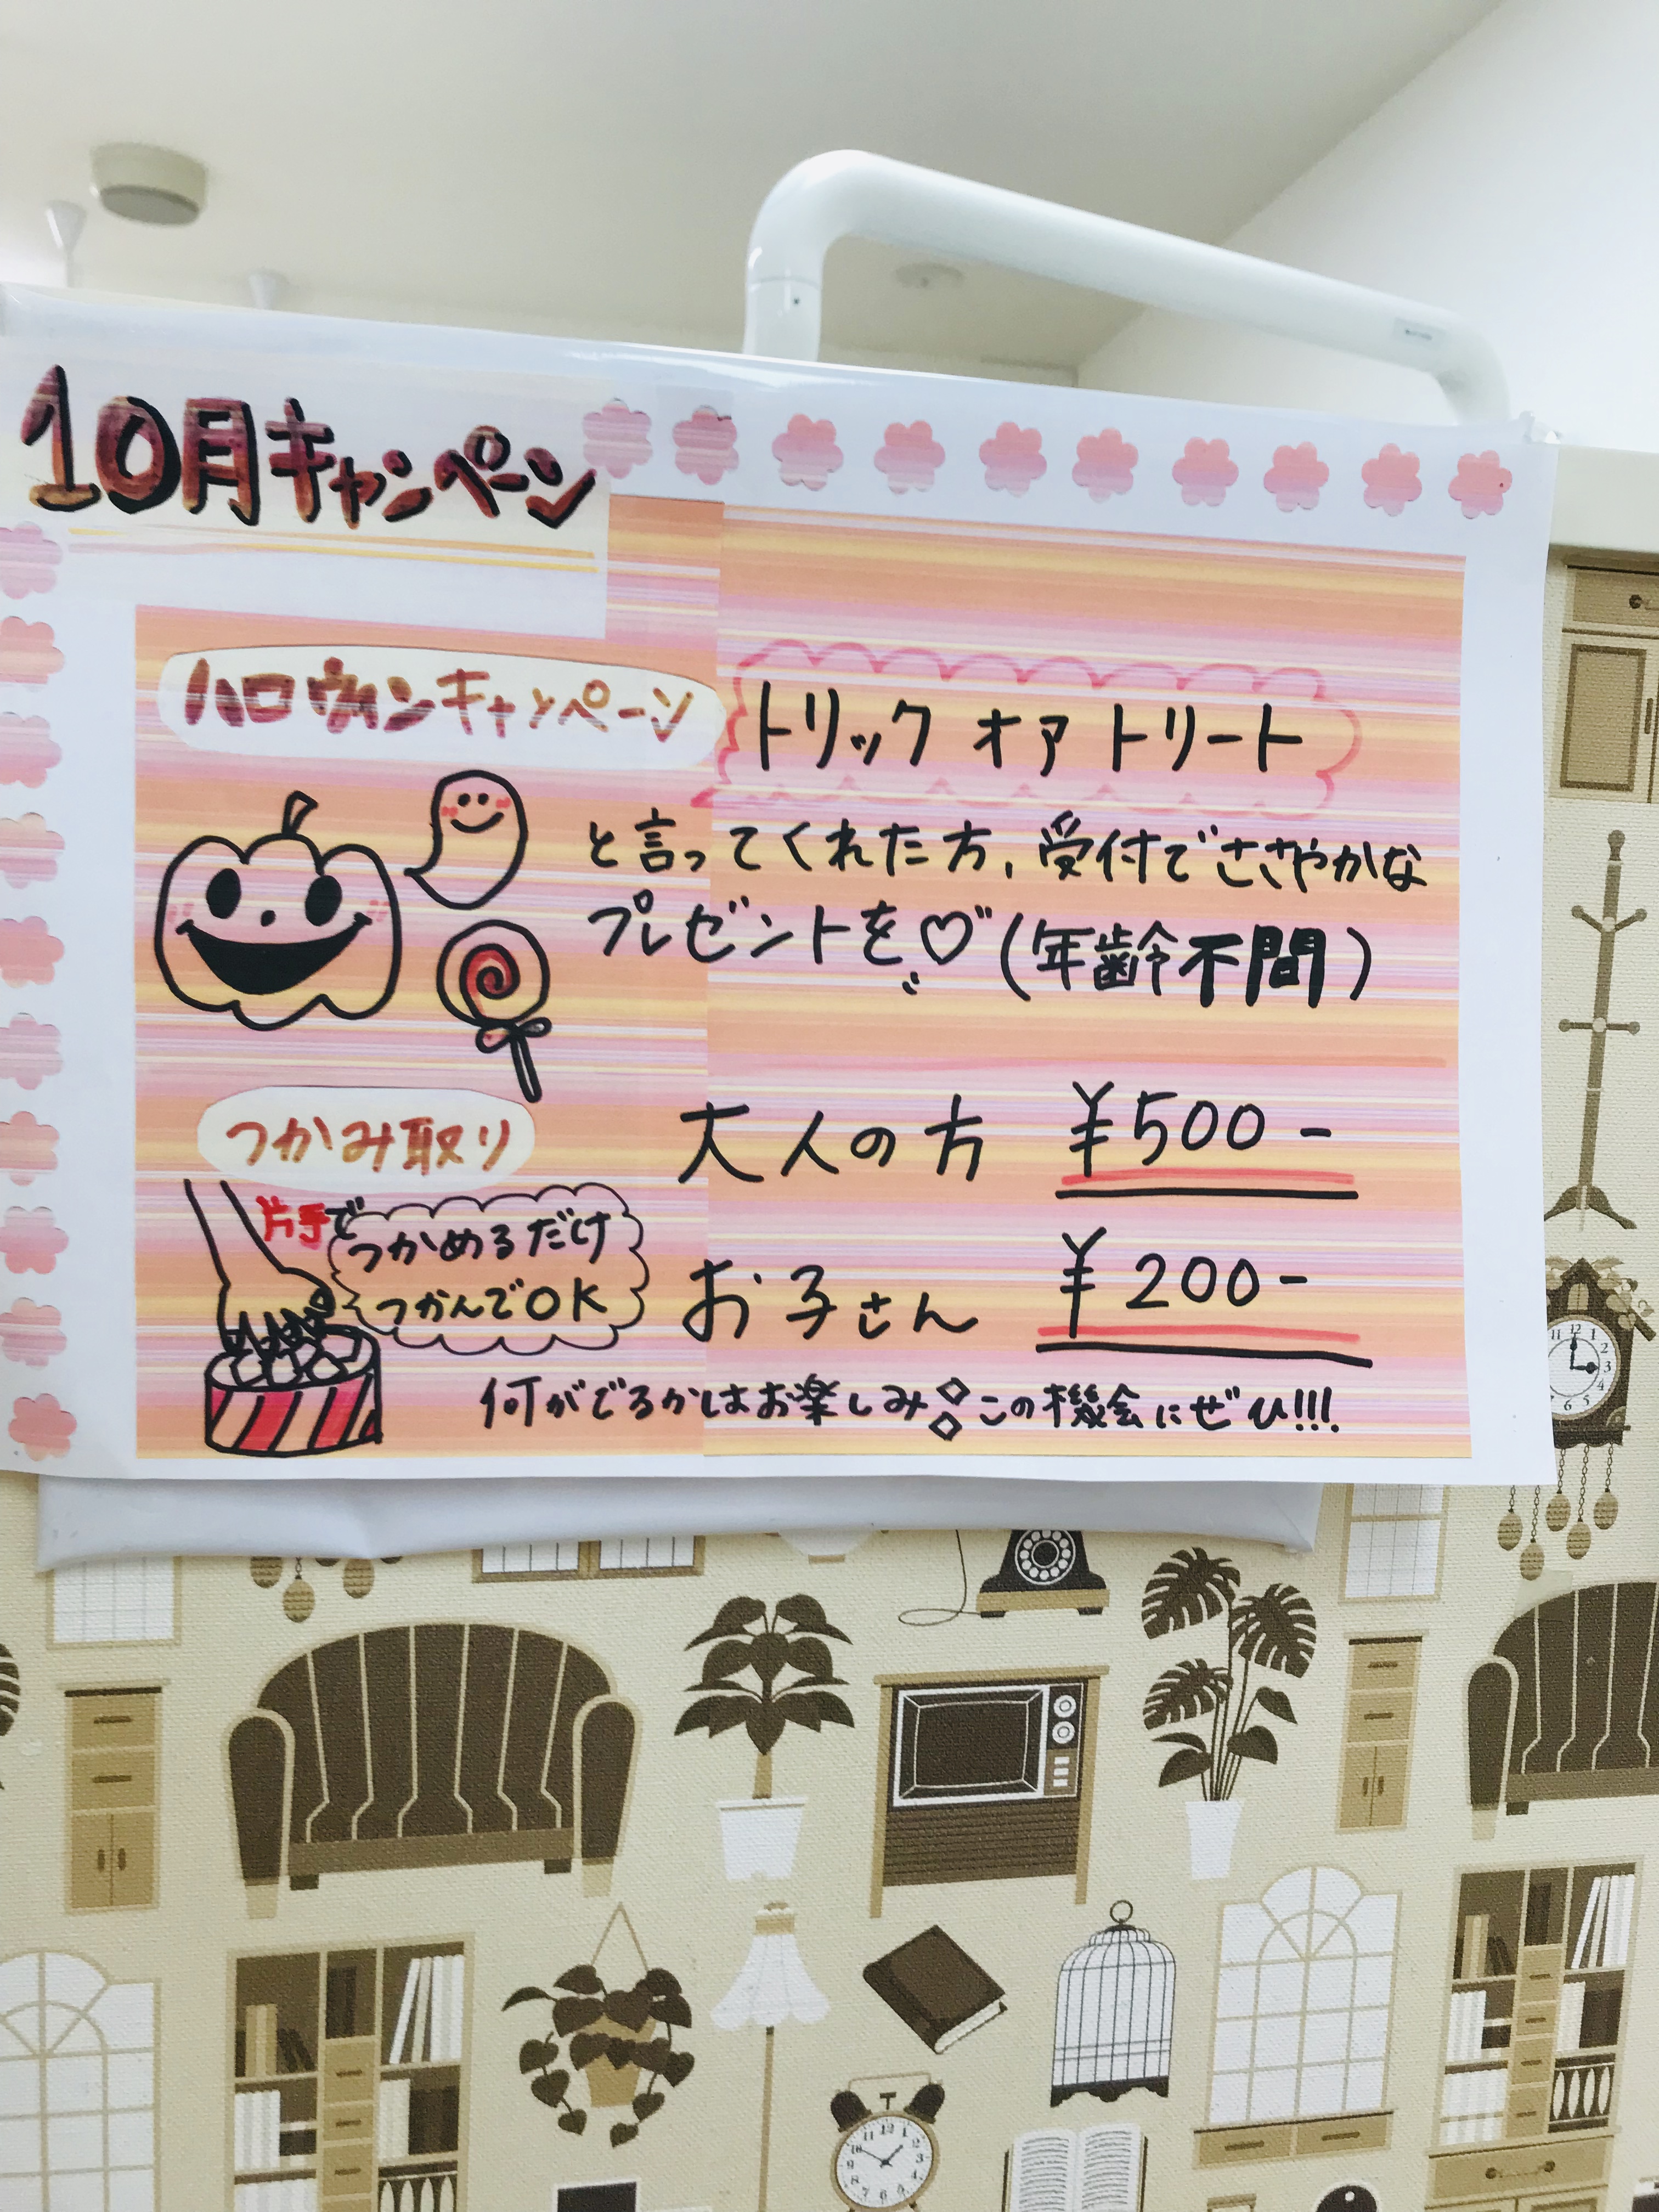 10月キャンペーン
ハロウィンキャンペーン
トリック オア トリート
と言ってくれた方、受付でささやかな
プレゼントを♡(年齢不間)
つかみ取り
片手で
つかめるだけ
つかんでOK
大人の方 ¥500-
お子さん ¥200-
何がでるかはお楽しみ この機会にぜひ!!!